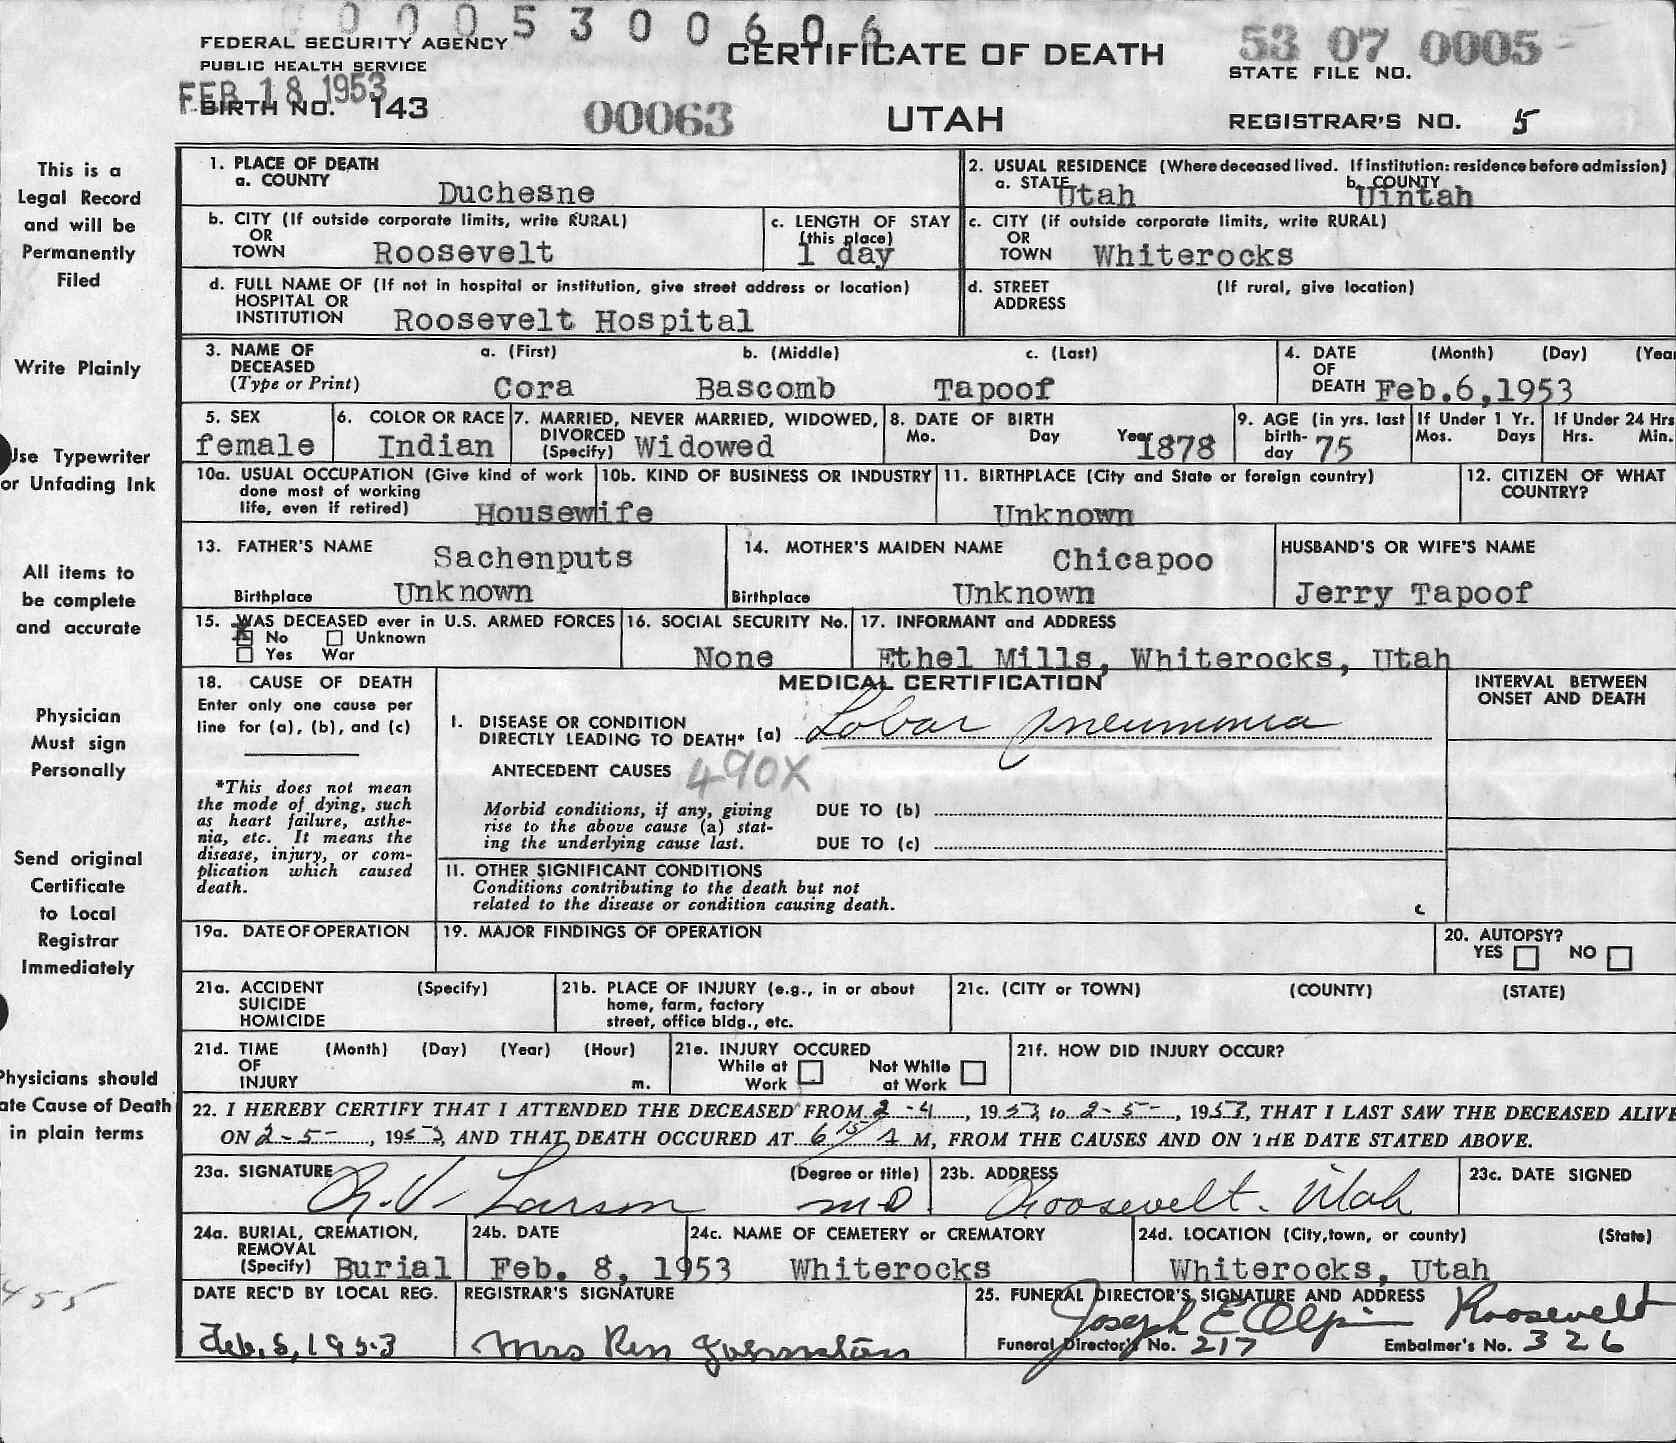 000 5 3 0 0 6 0 6
FEDERAL SECURITY AGENCY
PUBLIC HEALTH SERVICE
CERTIFICATE OF DEATH
53 07 0005
STATE FILE NO.
FEB 18 1953
BIRTH NO. 143
00063
UTAH
REGISTRAR'S NO. 5
This is a
Legal Record
and will be
Permanently
Filed
Write Plainly
Use Typewriter
or Unfading Ink
All items to
be complete
and accurate
Physician
Must sign
Personally
Send original
Certificate
to Local
Registrar
Immediately
Physicians should
ate Cause of Death
in plain terms
455
1. PLACE OF DEATH
a. COUNTY Duchesne
2. USUAL RESIDENCE (Where deceased lived. If institution: residence before admission)
a. STATE Utah b. COUNTY Uintah
b. CITY (If outside corporate limits, write RURAL)
OR
TOWN Roosevelt
c. LENGTH OF STAY
(this place)
1 day
c. CITY (if outside corporate limits, write RURAL)
OR
TOWN Whiterocks
d. FULL NAME OF (If not in hospital or institution, give street address or location)
HOSPITAL OR
INSTITUTION Roosevelt Hospital
d. STREET (If rural, give location)
ADDRESS
3. NAME OF a. (First) b. (Middle) c. (Last)
DECEASED
(Type or Print) Cora Bascomb Tapoof
4. DATE (Month) (Day) (Yea
OF
DEATH Feb.6,1953
5. SEX
female
6. COLOR OR RACE
Indian
7. MARRIED, NEVER MARRIED, WIDOWED,
DIVORCED
(Specify) Widowed
8. DATE OF BIRTH
Mo. Day Year 1878
9. AGE (in yrs. last
birth-
day 75
If Under 1 Yr.
Mos. Days
If Under 24 Hrs
Hrs. Min.
10a. USUAL OCCUPATION (Give kind of work
done most of working
life, even if retired) Housewife
10b. KIND OF BUSINESS OR INDUSTRY
11. BIRTHPLACE (City and State or foreign country)
Unknown
12. CITIZEN OF WHAT
COUNTRY?
13. FATHER'S NAME Sachenputs
Birthplace Unknown
14. MOTHER'S MAIDEN NAME Chicapoo
Birthplace Unknown
HUSBAND'S OR WIFE'S NAME
Jerry Tapoof
15. WAS DECEASED ever in U.S. ARMED FORCES
X No Unknown
Yes War
16. SOCIAL SECURITY No.
None
17. INFORMANT and ADDRESS
Ethel Mills, Whiterocks, Utah
18. CAUSE OF DEATH
Enter only one cause per
line for (a), (b), and (c)
*This does not mean
the mode of dying, such
as heart failure, asthe-
nia, etc. It means the
disease, injury, or com-
plication which caused
death.
MEDICAL CERTIFICATION
INTERVAL BETWEEN
ONSET AND DEATH
I. DISEASE OR CONDITION
DIRECTLY LEADING TO DEATH* (a) Lobar pneumonia
ANTECEDENT CAUSES 490X
Morbid conditions, if any, giving
rise to the above cause (a) stat-
ing the underlying cause last.
DUE TO (b)
DUE TO (c)
11. OTHER SIGNIFICANT CONDITIONS
Conditions contributing to the death but not
related to the disease or condition causing death.
c
19a. DATE OF OPERATION
19. MAJOR FINDINGS OF OPERATION
20. AUTOPSY?
YES NO
21a. ACCIDENT (Specify)
SUICIDE
HOMICIDE
21b. PLACE OF INJURY (e.g., in or about
home, farm, factory
street, office bldg., etc.
21c. (CITY or TOWN) (COUNTY) (STATE)
21d. TIME (Month) (Day) (Year) (Hour)
OF
INJURY m.
21e. INJURY OCCURED
While at Work Not While at Work
21f. HOW DID INJURY OCCUR?
22. I HEREBY CERTIFY THAT I ATTENDED THE DECEASED FROM 2-4, 1953, to 2-5-, 1953, THAT I LAST SAW THE DECEASED ALIVE
ON 2-5-, 1953, AND THAT DEATH OCCURED AT 6 15 A M, FROM THE CAUSES AND ON THE DATE STATED ABOVE.
23a. SIGNATURE (Degree or title)
R.V. Larson MD
23b. ADDRESS
Roosevelt. Utah
23c. DATE SIGNED
24a. BURIAL, CREMATION,
REMOVAL
(Specify) Burial
24b. DATE
Feb. 8, 1953
24c. NAME OF CEMETERY or CREMATORY
Whiterocks
24d. LOCATION (City, town, or county) (State)
Whiterocks, Utah
DATE REC'D BY LOCAL REG.
Feb. 8, 1953
REGISTRAR'S SIGNATURE
Mrs Ren Johnston
25. FUNERAL DIRECTOR'S SIGNATURE AND ADDRESS
Joseph E Olpin Roosevelt
Funeral Director's No. 217 Embalmer's No. 326